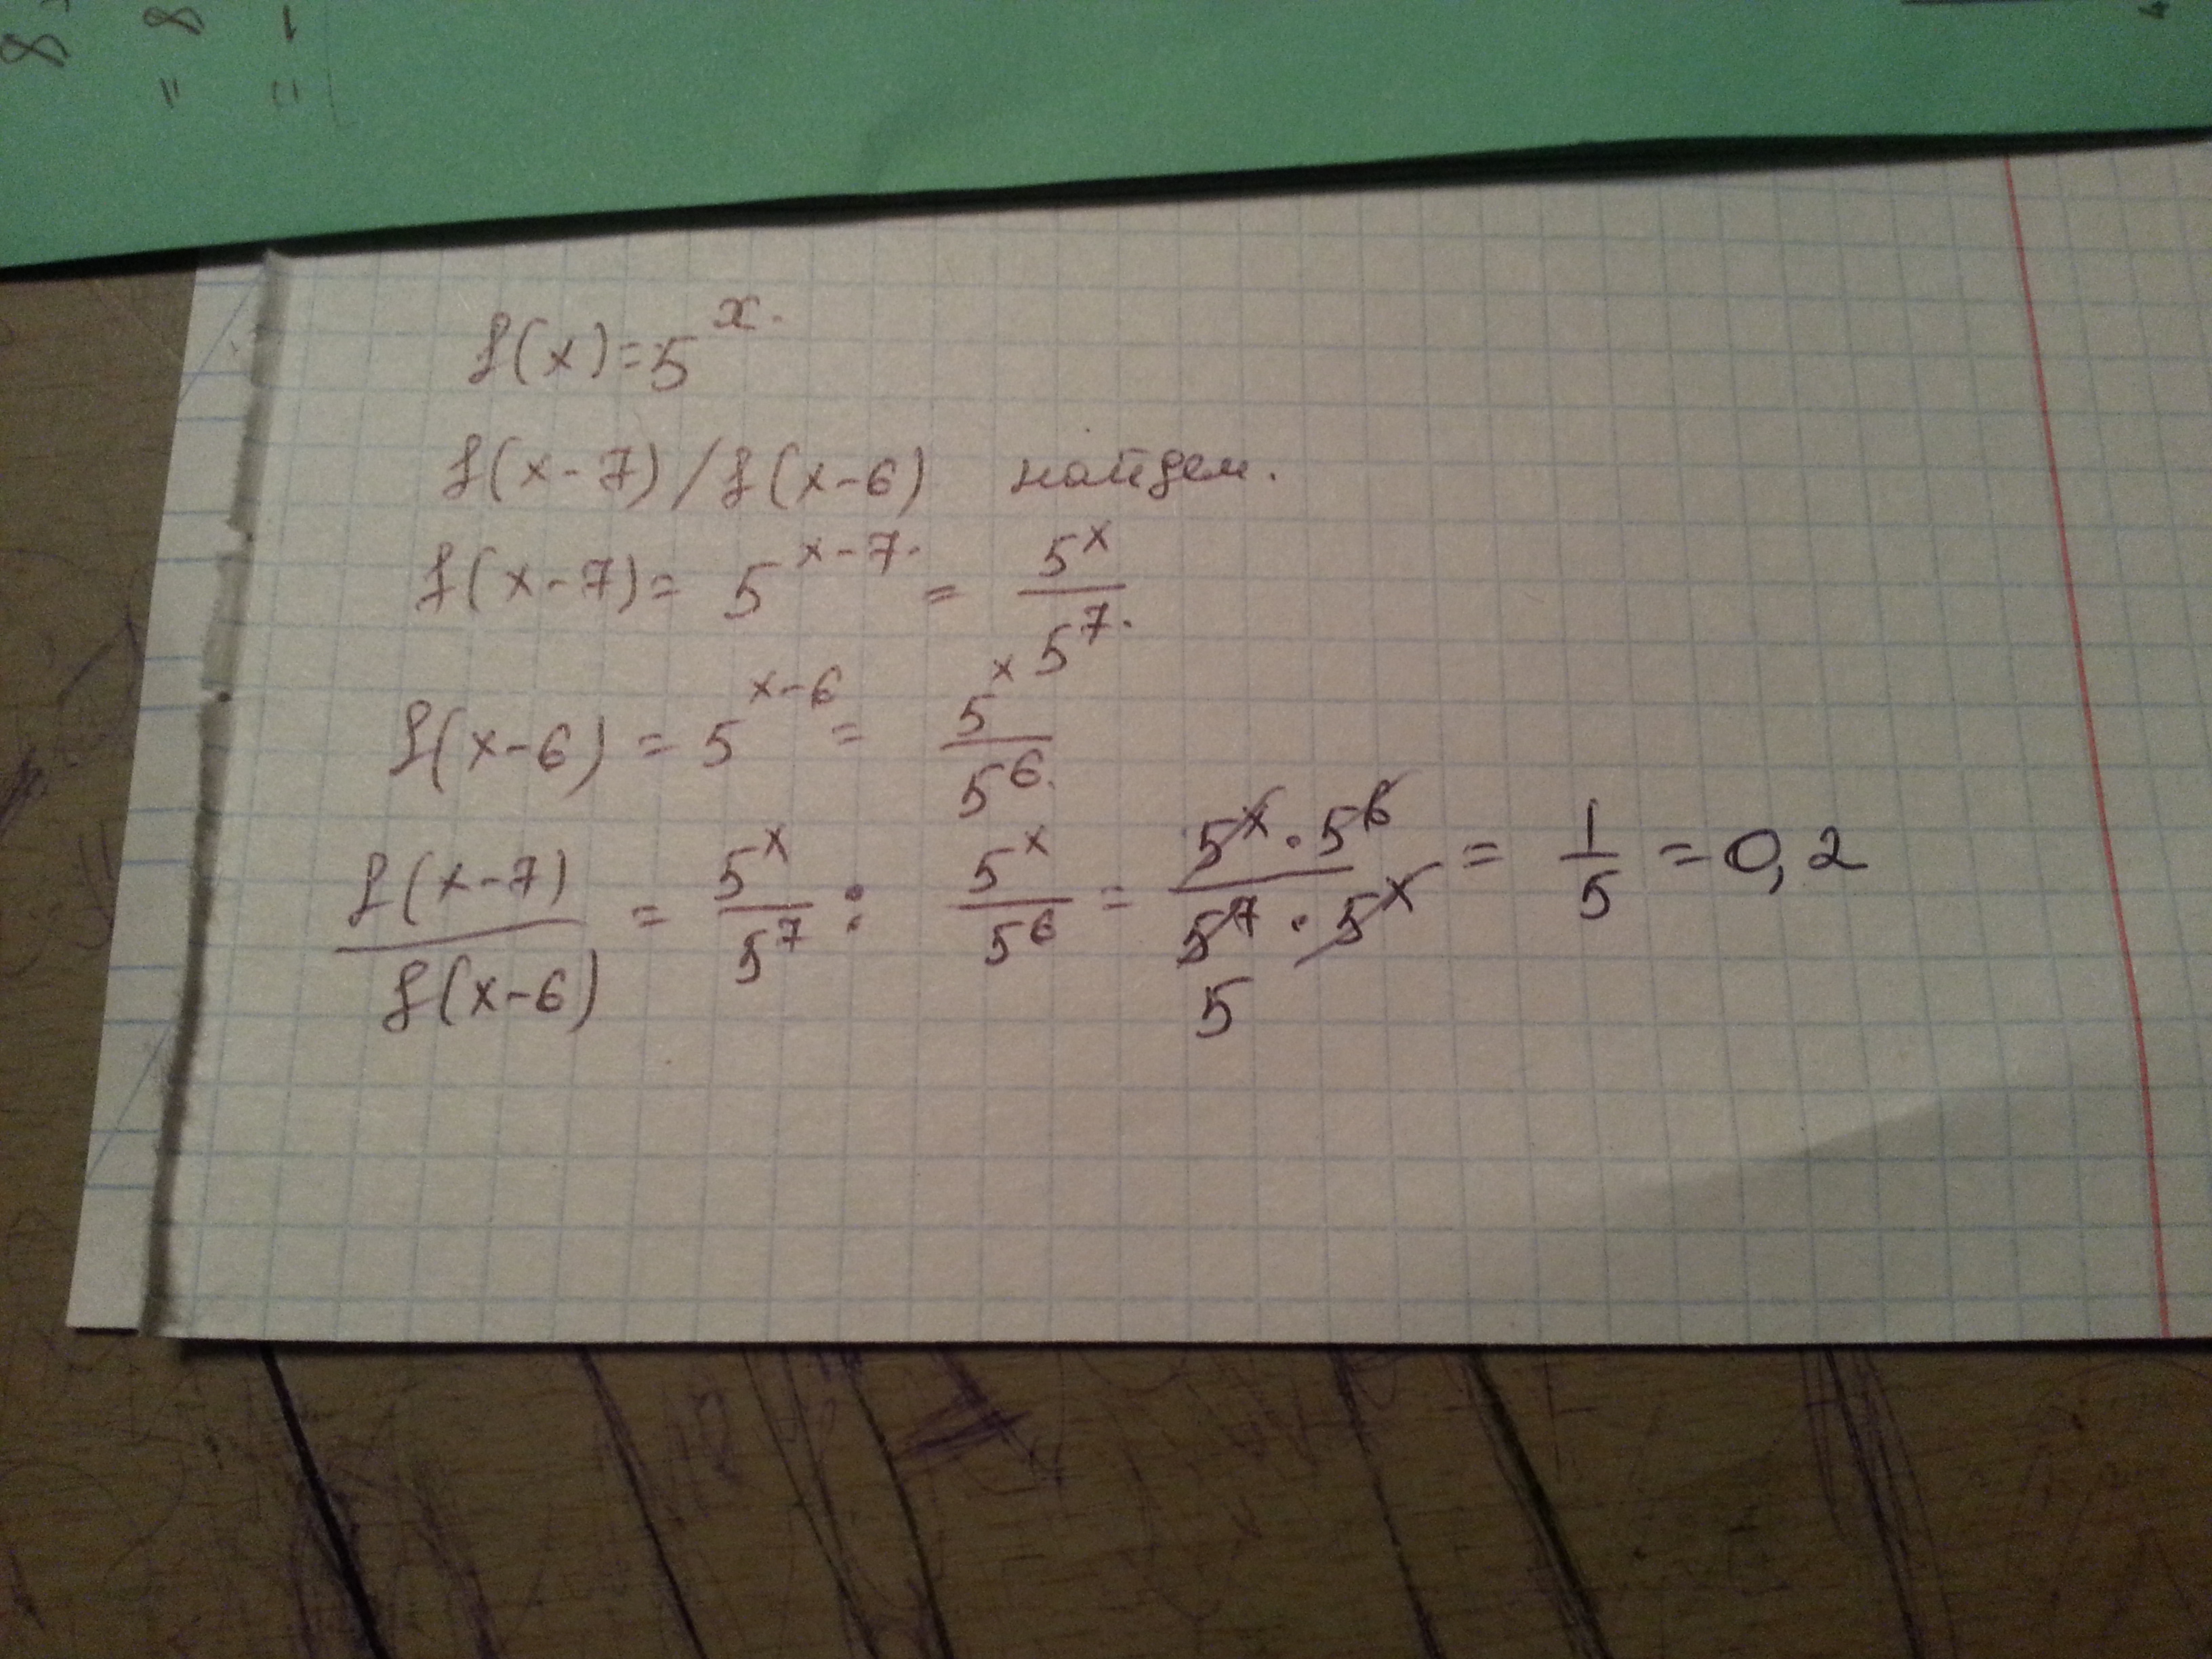 f(x)=5^x.
f(x-7)/f(x-6) найдем.
f(x-7)= 5^{x-7.} = 5^x/5^7.
f(x-6)=5^{x-6}= 5^x/5^6.
f(x-7)/f(x-6) = 5^x/5^7 : 5^x/5^6 = 5^x·5^6/5^7·5^x = 1/5 =0,2
5